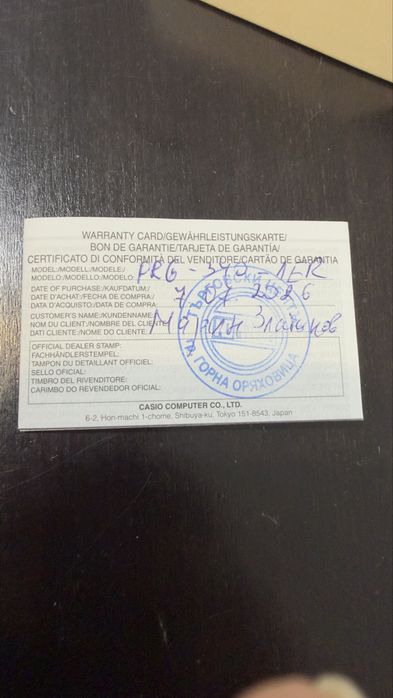 WARRANTY CARD/GEWÄHRLEISTUNGSKARTE/
BON DE GARANTIE/TARJETA DE GARANTÍA/
CERTIFICATO DI CONFORMITÀ DEL VENDITORE/CARTÃO DE GARANTIA
MODEL:/MODELL:/MODELE:/
MODELO:/MODELLO:/MODELO: PRG-340-1ER
DATE OF PURCHASE:/KAUFDATUM:/
DATE D'ACHAT:/FECHA DE COMPRA:/ 7 01 2026
DATA D'ACQUISTO:/DATA DE COMPRA:
CUSTOMER'S NAME:/KUNDENNAME:/
NOM DU CLIENT:/NOMBRE DEL CLIENTE:/
DATI CLIENTE:/NOME DO CLIENTE: Златков
OFFICIAL DEALER STAMP:
FACHHÄNDLERSTEMPEL:
TAMPON DU DETAILLANT OFFICIEL:
SELLO OFICIAL:
TIMBRO DEL RIVENDITORE:
CARIMBO DO REVENDEDOR OFICIAL:
ГР. ГОРНА ОРЯХОВИЦА
CASIO COMPUTER CO., LTD.
6-2, Hon-machi 1-chome, Shibuya-ku, Tokyo 151-8543, Japan